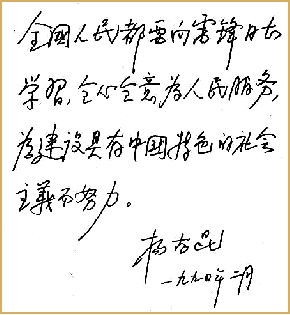 全國人民都要向雷锋同志
学習,全心全意为人民服务,
为建设具有中國特色的社会
主義而努力。
杨尚昆
一九九〇年二月